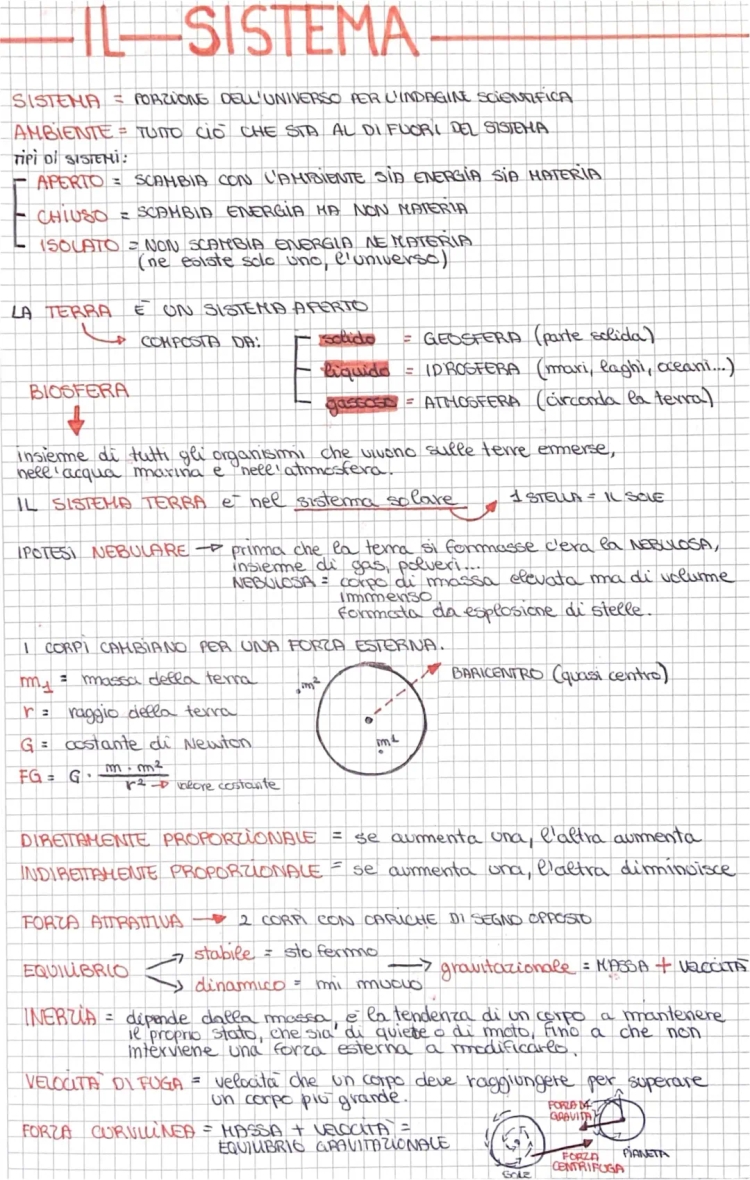 IL SISTEMA
SISTEMA = PORZIONE DELL'UNIVERSO PER L'INDAGINE SCIENTIFICA
AMBIENTE = TUTTO CIÒ CHE STA AL DI FUORI DEL SISTEMA
TIPI DI SISTEMI:
APERTO = SCAMBIA CON L'AMBIENTE SIA ENERGIA SIA MATERIA
CHIUSO = SCAMBIA ENERGIA MA NON MATERIA
ISOLATO = NON SCAMBIA ENERGIA NE MATERIA
(ne esiste solo uno, l'universo)
LA TERRA È UN SISTEMA APERTO
COMPOSTA DA:
solido = GEOSFERA (parte solida)
liquido = IDROSFERA (mari, laghi, oceani...)
gassoso = ATMOSFERA (circonda la terra)
BIOSFERA
insieme di tutti gli organismi che vivono sulle terre emerse,
nell'acqua marina e nell'atmosfera.
IL SISTEMA TERRA è nel sistema solare → 1 STELLA = IL SOLE
IPOTESI NEBULARE → prima che la terra si formasse c'era la NEBULOSA,
insieme di gas, polveri...
NEBULOSA = corpo di massa elevata ma di volume
immenso
formata da esplosione di stelle.
I CORPI CAMBIANO PER UNA FORZA ESTERNA.
m1 = massa della terra
r = raggio della terra
G = costante di Newton
FG = G · m · m² / r² → valore costante
.m²
BARICENTRO (quasi centro)
m1
DIRETTAMENTE PROPORZIONALE = se aumenta una, l'altra aumenta
INDIRETTAMENTE PROPORZIONALE = se aumenta una, l'altra diminuisce
FORZA ATTRATTIVA → 2 CORPI CON CARICHE DI SEGNO OPPOSTO
EQUILIBRIO
stabile = sto fermo
dinamico = mi muovo
→ gravitazionale = MASSA + VELOCITÀ
INERZIA = dipende dalla massa, è la tendenza di un corpo a mantenere
il proprio stato, che sia di quiete o di moto, fino a che non
interviene una forza esterna a modificarlo.
VELOCITÀ DI FUGA = velocità che un corpo deve raggiungere per superare
un corpo più grande.
FORZA CURVILINEA = MASSA + VELOCITÀ =
EQUILIBRIO GRAVITAZIONALE
FORZA DI
GRAVITÀ
PIANETA
FORZA
CENTRIFUGA
SOLE